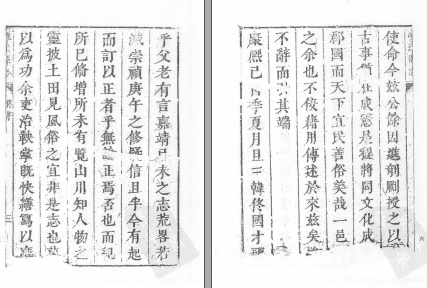 乎父老有言嘉靖己未之志荒畧若
滅崇禎庚午之修疑信且半今有起
而訂以正者乎無能正焉否也而紀
所已脩增所未有覧山川知人物之
靈披土田見風俗之宜非是志也
以爲功余吏治鞅掌既快繕寫以
使命今茲公餘因進剞劂授之以
古事所在成憲是從將同文化成
郡國而天下宜民善俗美哉一邑
之余也不佞藉用傳述於來茲矣
不辭而弁其端
康熙己季夏月旦三韓佟國才